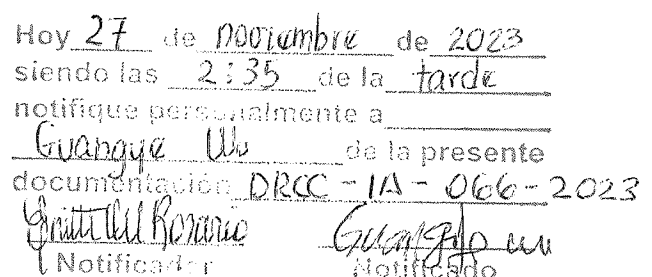 Hoy 27 de noviembre de 2023
siendo las 2:35 de la tarde
notifique personalmente a
Guangye Wu de la presente
documentación DRCC-IA-066-2023
Notificador Notificado